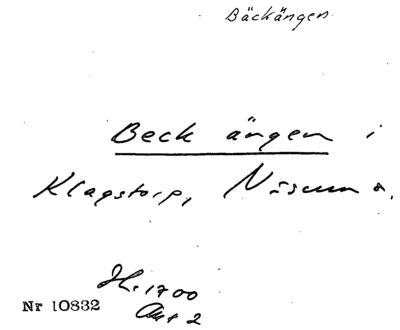 Bäckängen
Beck ängen i
Klagstorp, Näsum s.
1700
Nr 10832
2